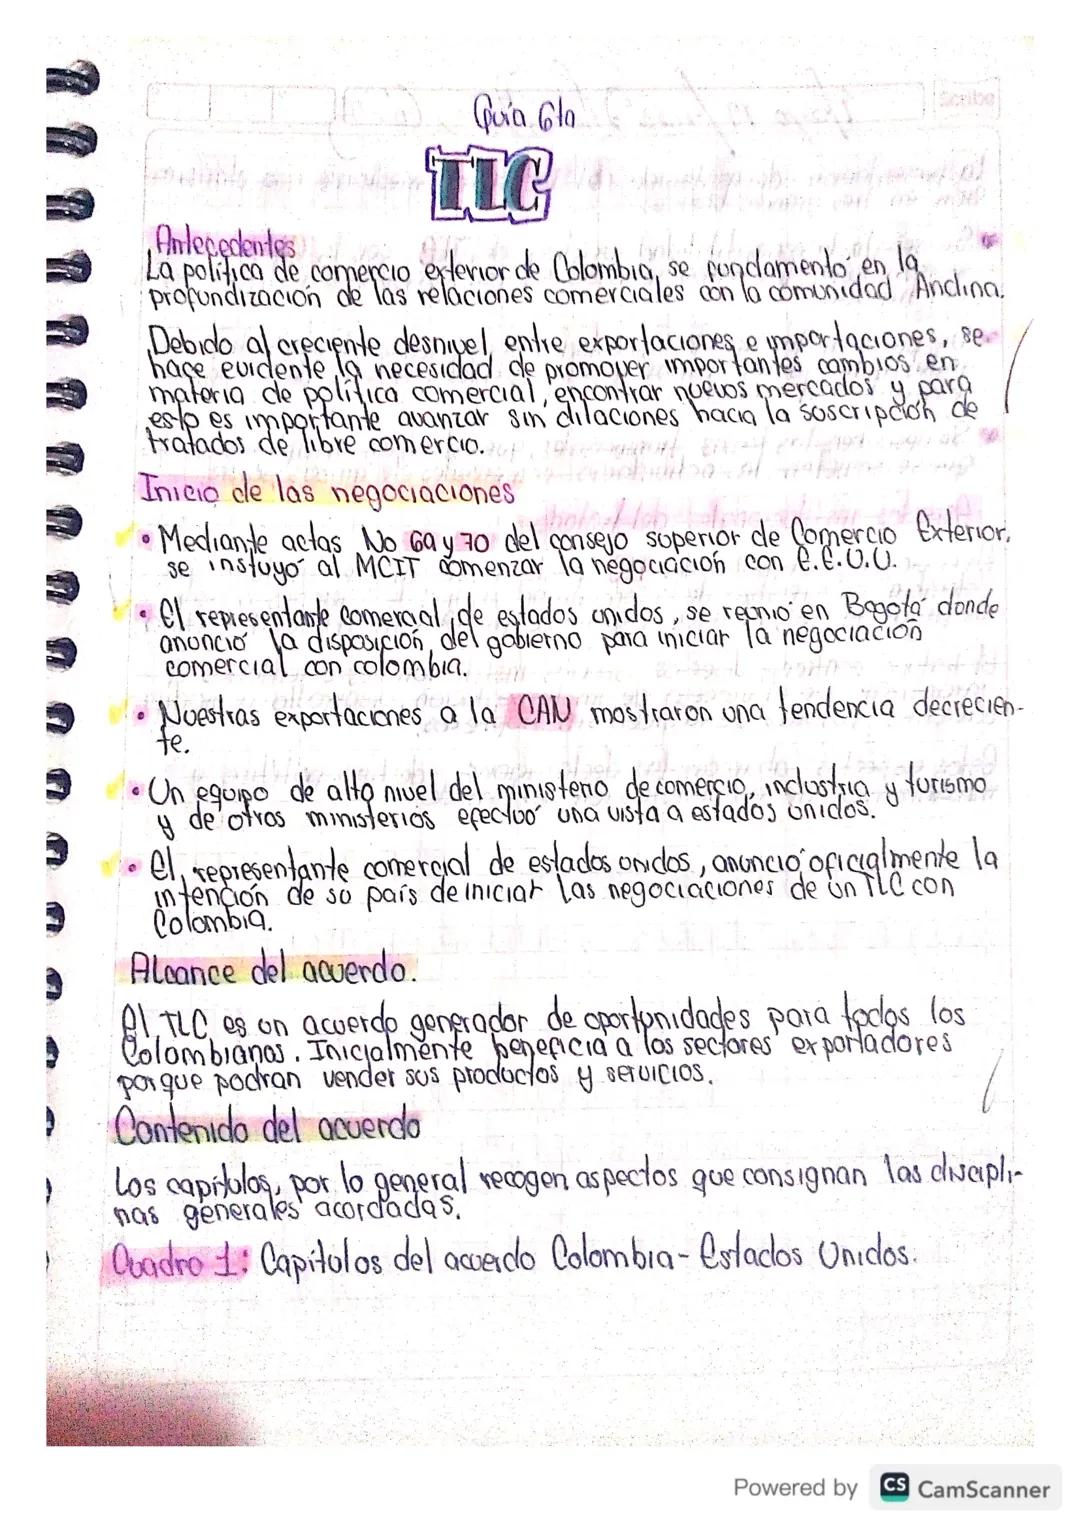 Guía 6ta
TLC
Antecedentes
La política de comercio exterior de Colombia, se fundamentó en la
profundización de las relaciones comerciales con la comunidad Andina.
Debido al creciente desnivel entre exportaciones e importaciones, se
hace evidente la necesidad de promover importantes cambios en
materia de política comercial, encontrar nuevos mercados y para
esto es importante avanzar sin dilaciones hacia la suscripción de
tratados de libre comercio.
Inicio de las negociaciones
• Mediante actas No 69 y 70 del consejo superior de Comercio Exterior,
se instuyó al MCIT comenzar la negociación con E.E.U.U.
• El representante comercial de estados unidos, se reunió en Bogotá donde
anunció la disposición del gobierno para iniciar la negociación
comercial con colombia.
• Nuestras exportaciones a la CAN mostraron una tendencia decrecien-
te.
• Un equipo de alto nivel del ministerio de comercio, industria y turismo
y de otros ministerios efectuó una vista a estados unidos.
• El representante comercial de estados unidos, anunció oficialmente la
intención de su país de iniciar las negociaciones de un TLC con
Colombia.
Alcance del acuerdo.
El TLC es un acuerdo generador de oportunidades para todos los
Colombianos. Inicialmente beneficia a los sectores exportadores
porque podran vender sus productos y servicios.
Contenido del acuerdo
Los capítulos, por lo general recogen aspectos que consignan las discipli-
nas generales acordadas.
Cuadro 1: Capítulos del acuerdo Colombia - Estados Unidos.
Powered by CS CamScanner